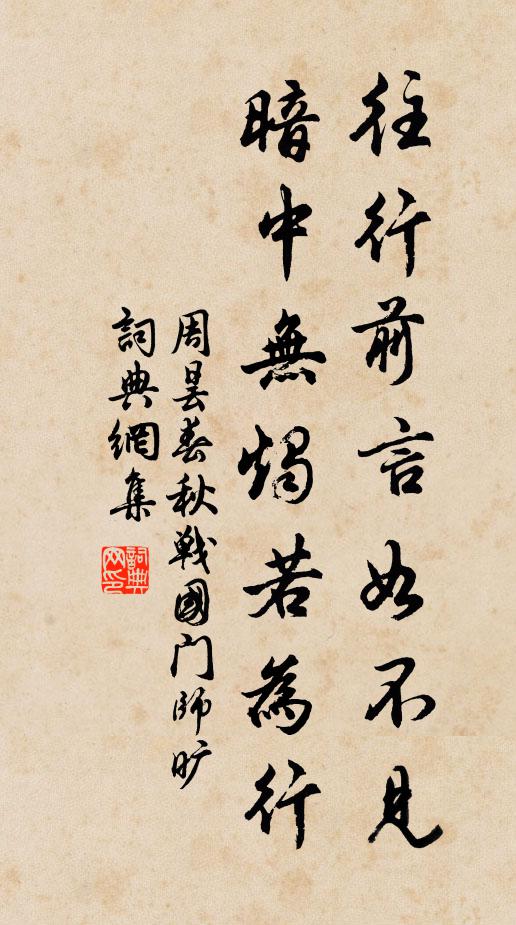 往行前言如不見
暗中無燭若為行
周曇春秋戰國門師曠
詞典網集
詞典網印